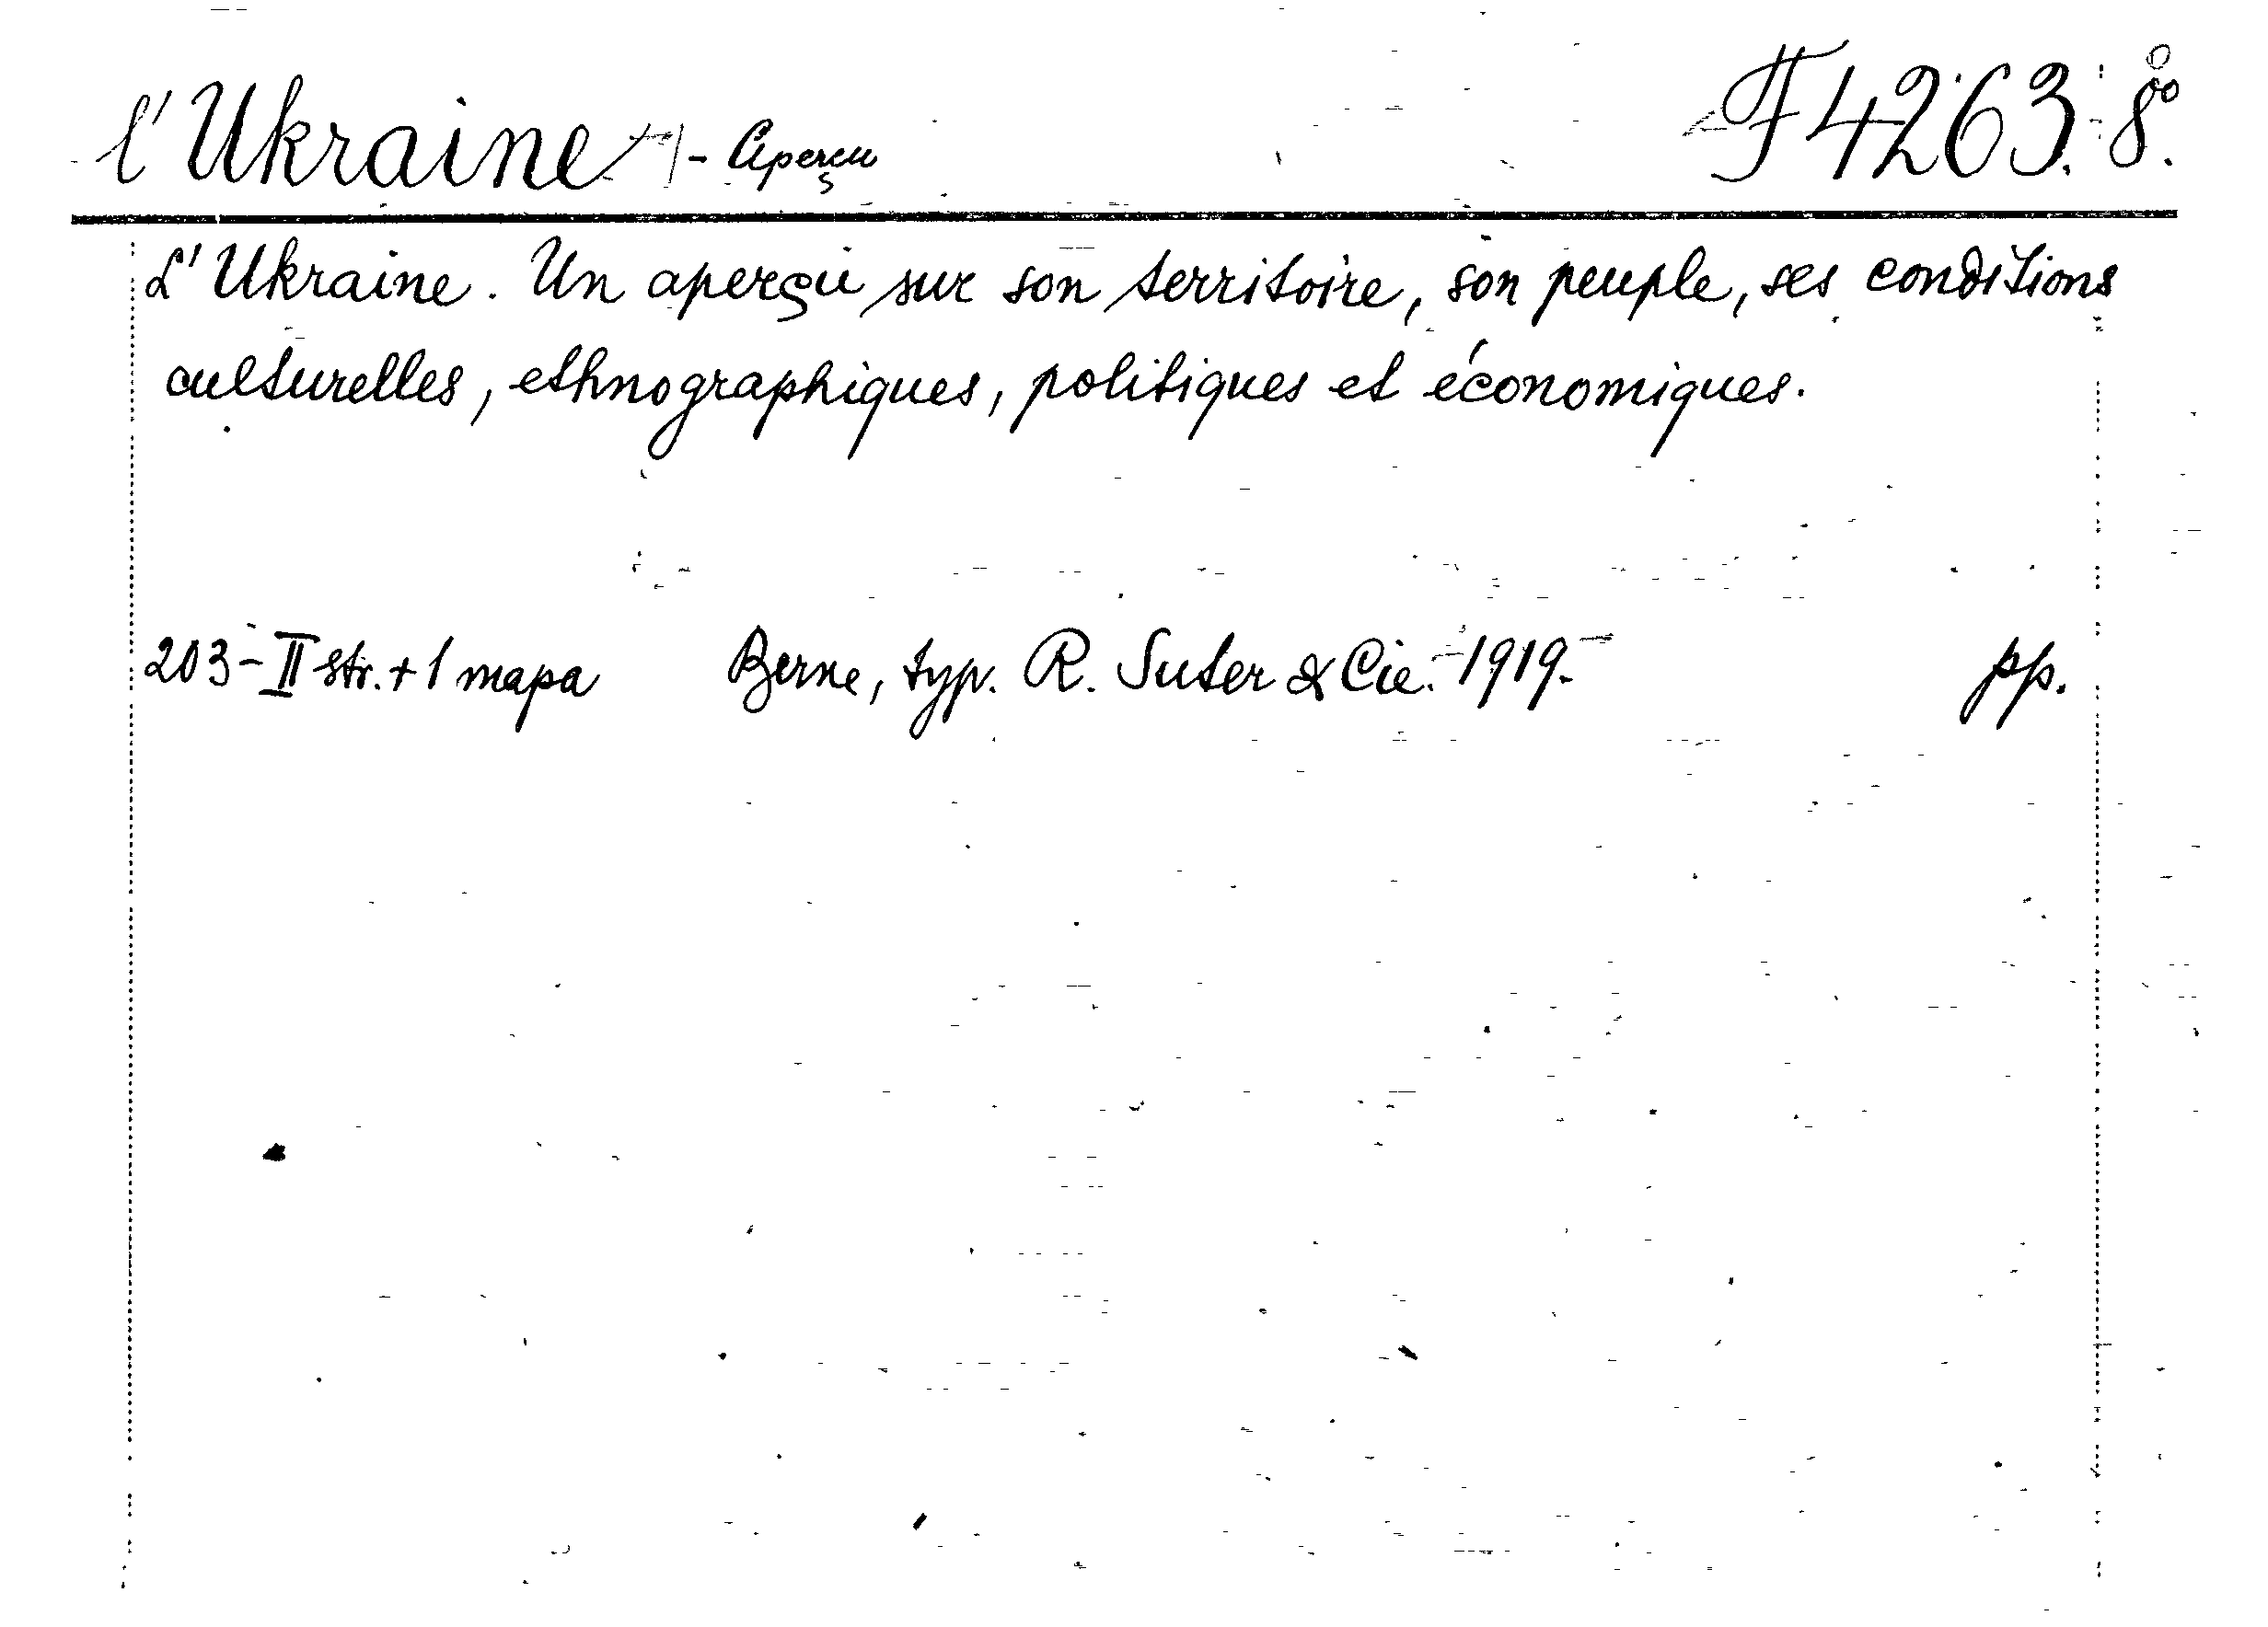 l'Ukraine - Aperçu F 4263. 8°.
L'Ukraine. Un aperçu sur son territoire, son peuple, ses conditions
culturelles, ethnographiques, politiques et économiques.
203-II str. + 1 mapa Berne, typ. R. Suter & Cie. 1919. pp.